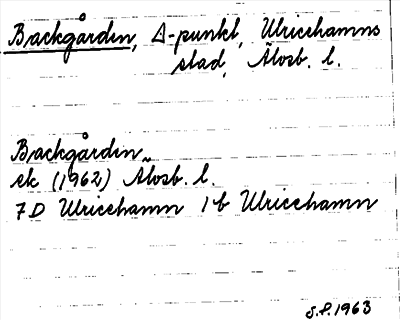 Backgården, Δ-punkt, Ulricehamns
stad, Älvsb. l.
Backgården
ek (1962) Älvsb. l.
7D Ulricehamn 1b Ulricehamn
S.P. 1963